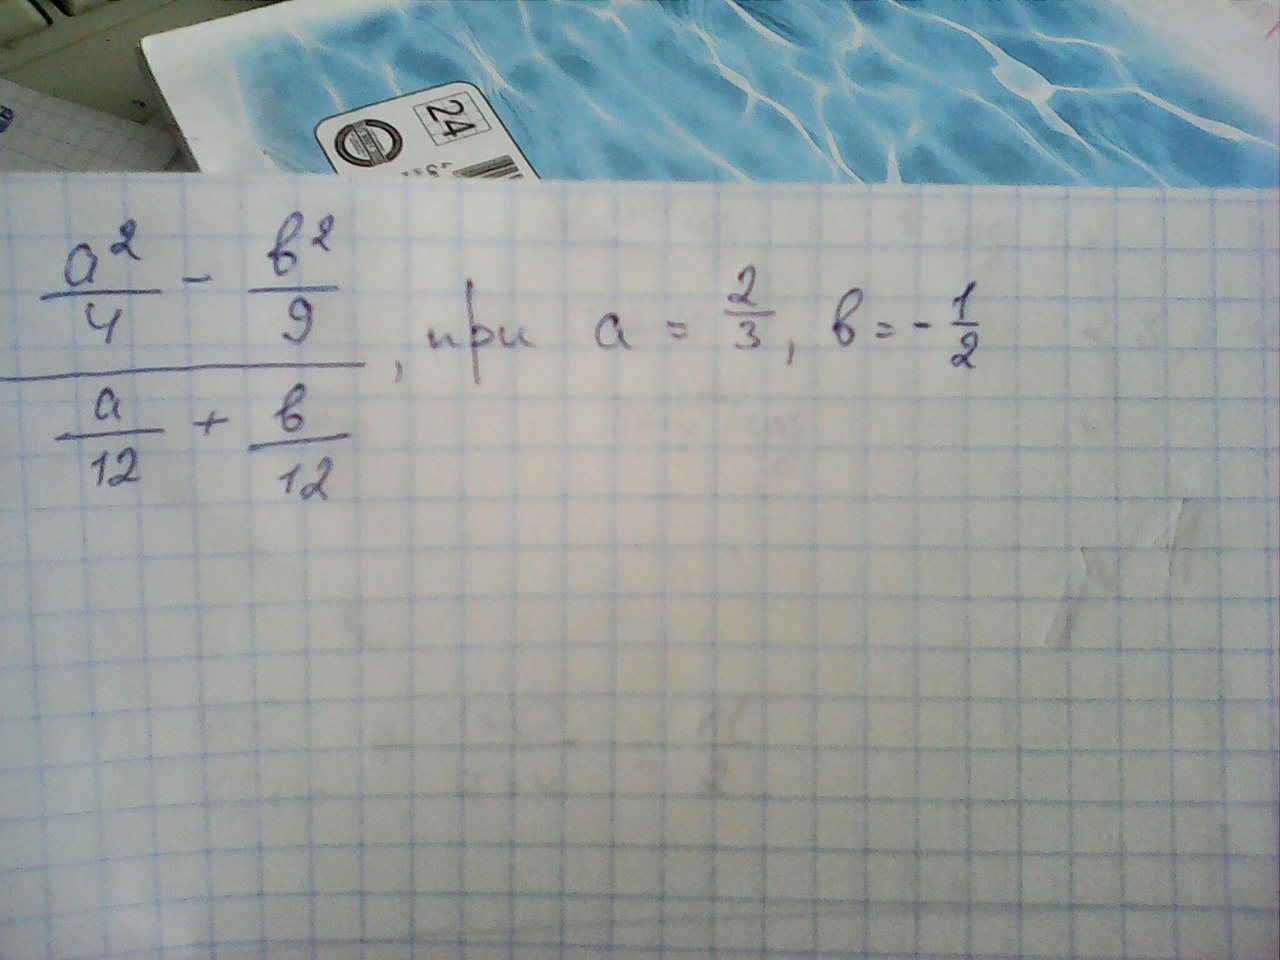 24
a² / 4 - в² / 9
a / 12 + в / 12
, при a = 2/3, в = - 1/2